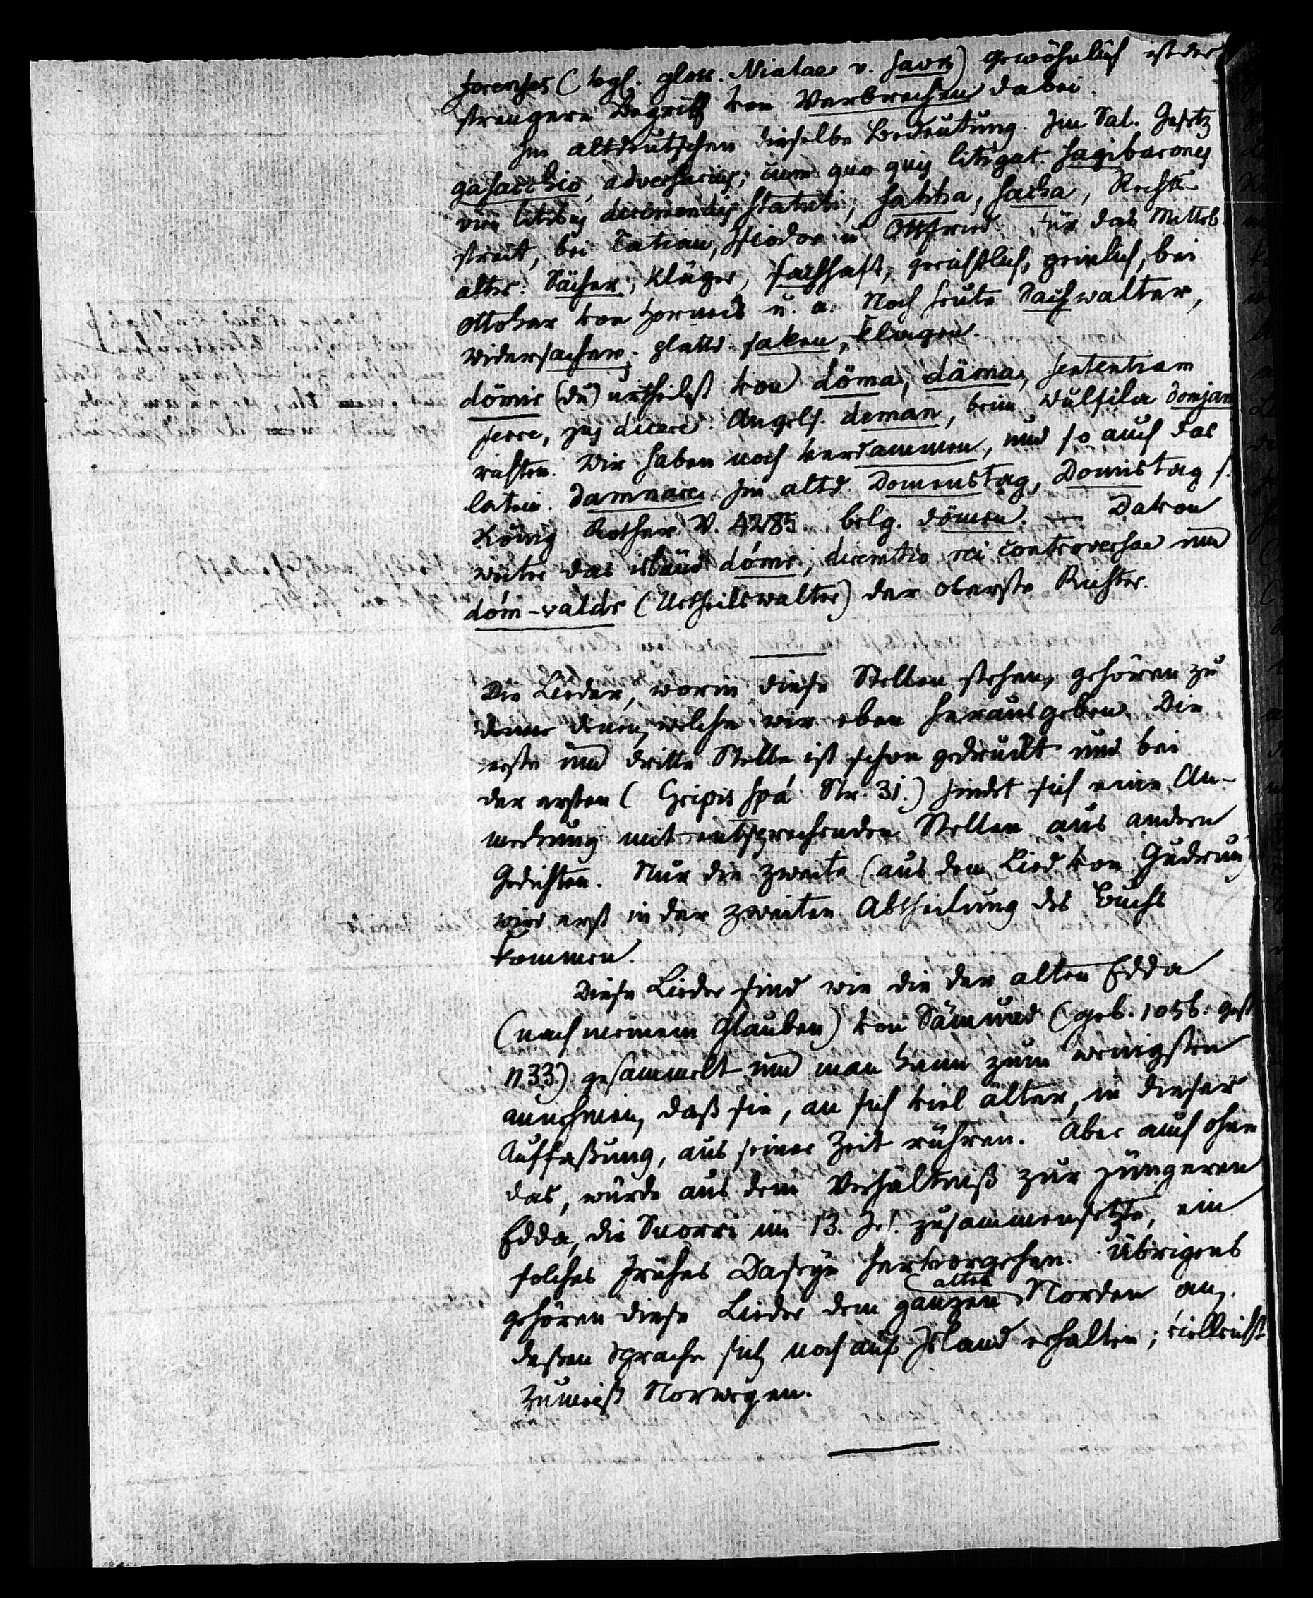 forenses (vgl. gloss. Nialae v. savr) gewöhnlich ist der
strengere Begriff von Verbrechen dabei.
Im altdeutschen dieselbe Bedeutung. Im Sal. Gesetz
gasacchio, adversarius, cum quo quis litigat. sagibarones
viri litibus dirimendis statuti; sahha, sacha, Rechts-
streit, bei Tatian, Isidor u. Ottfried. für das Mittel-
alter: Sächer, Kläger, sachhaft, gerichtlich, peinlich, bei
Ottokar von Horneck u. a. Noch heute Sachwalter,
Widersacher; plattd. saken, klagen.
dömir (du) urtheilst von döma, däma, sententiam
ferre, jus dicere. Angels. deman, beim Vulfila domjan
richten. Wir haben noch verdammen, und so auch das
latein. damnare. Im altd. Domenstag, Domistag s.
König Rother V. 4285. belg. dömen. — Davon
weiter das isländ. dómr, diremtio rei controversae und
dóm-valdr (Urtheilswalter) der oberste Richter.
Die Lieder, worin diese Stellen stehen, gehören zu
denen, welche wir eben herausgeben. Die
erste und dritte Stelle ist schon gedruckt und bei
der ersten (Gripis spá Str. 31.) findet sich eine An-
merkung mit entsprechenden Stellen aus andern
Gedichten. Nur die zweite (aus dem Lied von Gudrun)
wird erst in der zweiten Abtheilung des Buchs
kommen.
Diese Lieder sind wie die der alten Edda
(nach meinem Glauben) von Sämund (geb. 1056. gest.
1133) gesammelt und man kann zum wenigsten
annehmen, daß sie, an sich viel älter, in dieser
Auffaßung, aus seiner Zeit rühren. Aber auch ohne
das, würde aus dem Verhältniß zur jüngeren
Edda, die Snorri im 13. Jh. zusammensetzte, ein
solches frühes Daseyn hervorgehen. Übrigens
gehören diese Lieder dem ganzen alten Norden an,
deßen Sprache sich noch auf Island erhalten; vielleicht
zumeist Norwegen.